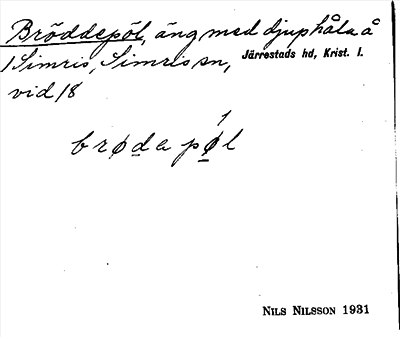 Bröddepöl, äng med djuphåla å
1 Simris, Simris sn, Järrestads hd, Krist. l.
vid 18
brødapøl
NILS NILSSON 1931